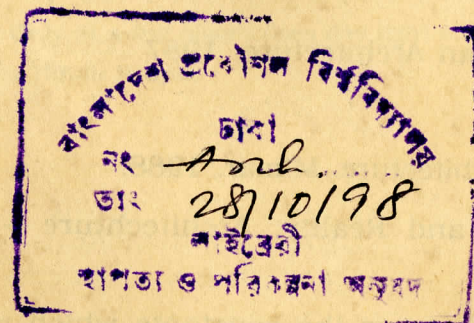 বাংলাদেশ প্রকৌশল বিশ্ববিদ্যালয়
ঢাকা
নং Arch.
তাং 28/10/98
লাইব্রেরী
স্থাপত্য ও পরিকল্পনা অনুষদ